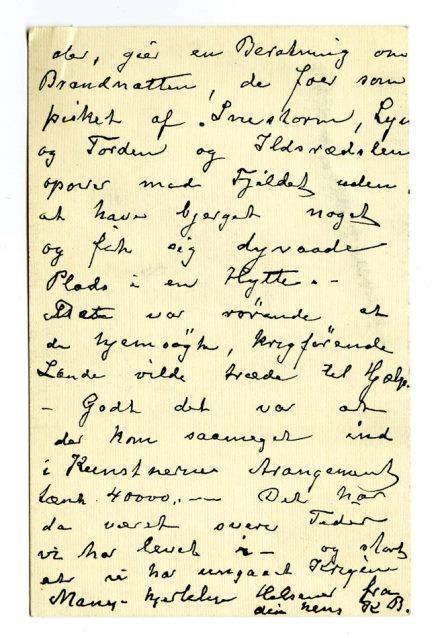 der, gier en Beretning om
Brandnatten, de foer som
pisket af Snestorm, Lyn
og Torden og Ildsrædslen
opover mod Fjeldet uden
at have bjerget noget
og fik sig dyvaade
Plads i en Hytte. -
var rørende at
de hjemsøgte, krigførende
Lande vilde træde til Hjælp.
- Godt det var at
der kom saameget ind
i Kunstnernes Arangement
tænk 40000,- - Det har
da været svære Tider
vi har levet i - og stort
at vi har undgaaet Krigen
Mange hjertelige Hilsener fra
din hens K B.